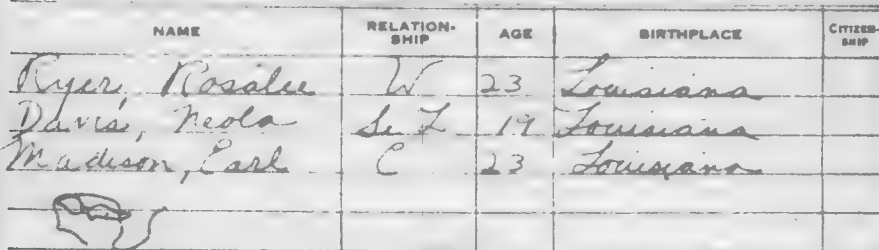 NAME RELATION-SHIP AGE BIRTHPLACE CITIZEN-SHIP
Ryer, Rosalee W 23 Louisiana
Davis, Neola Si L 19 Louisiana
Madison, Earl C 23 Louisiana